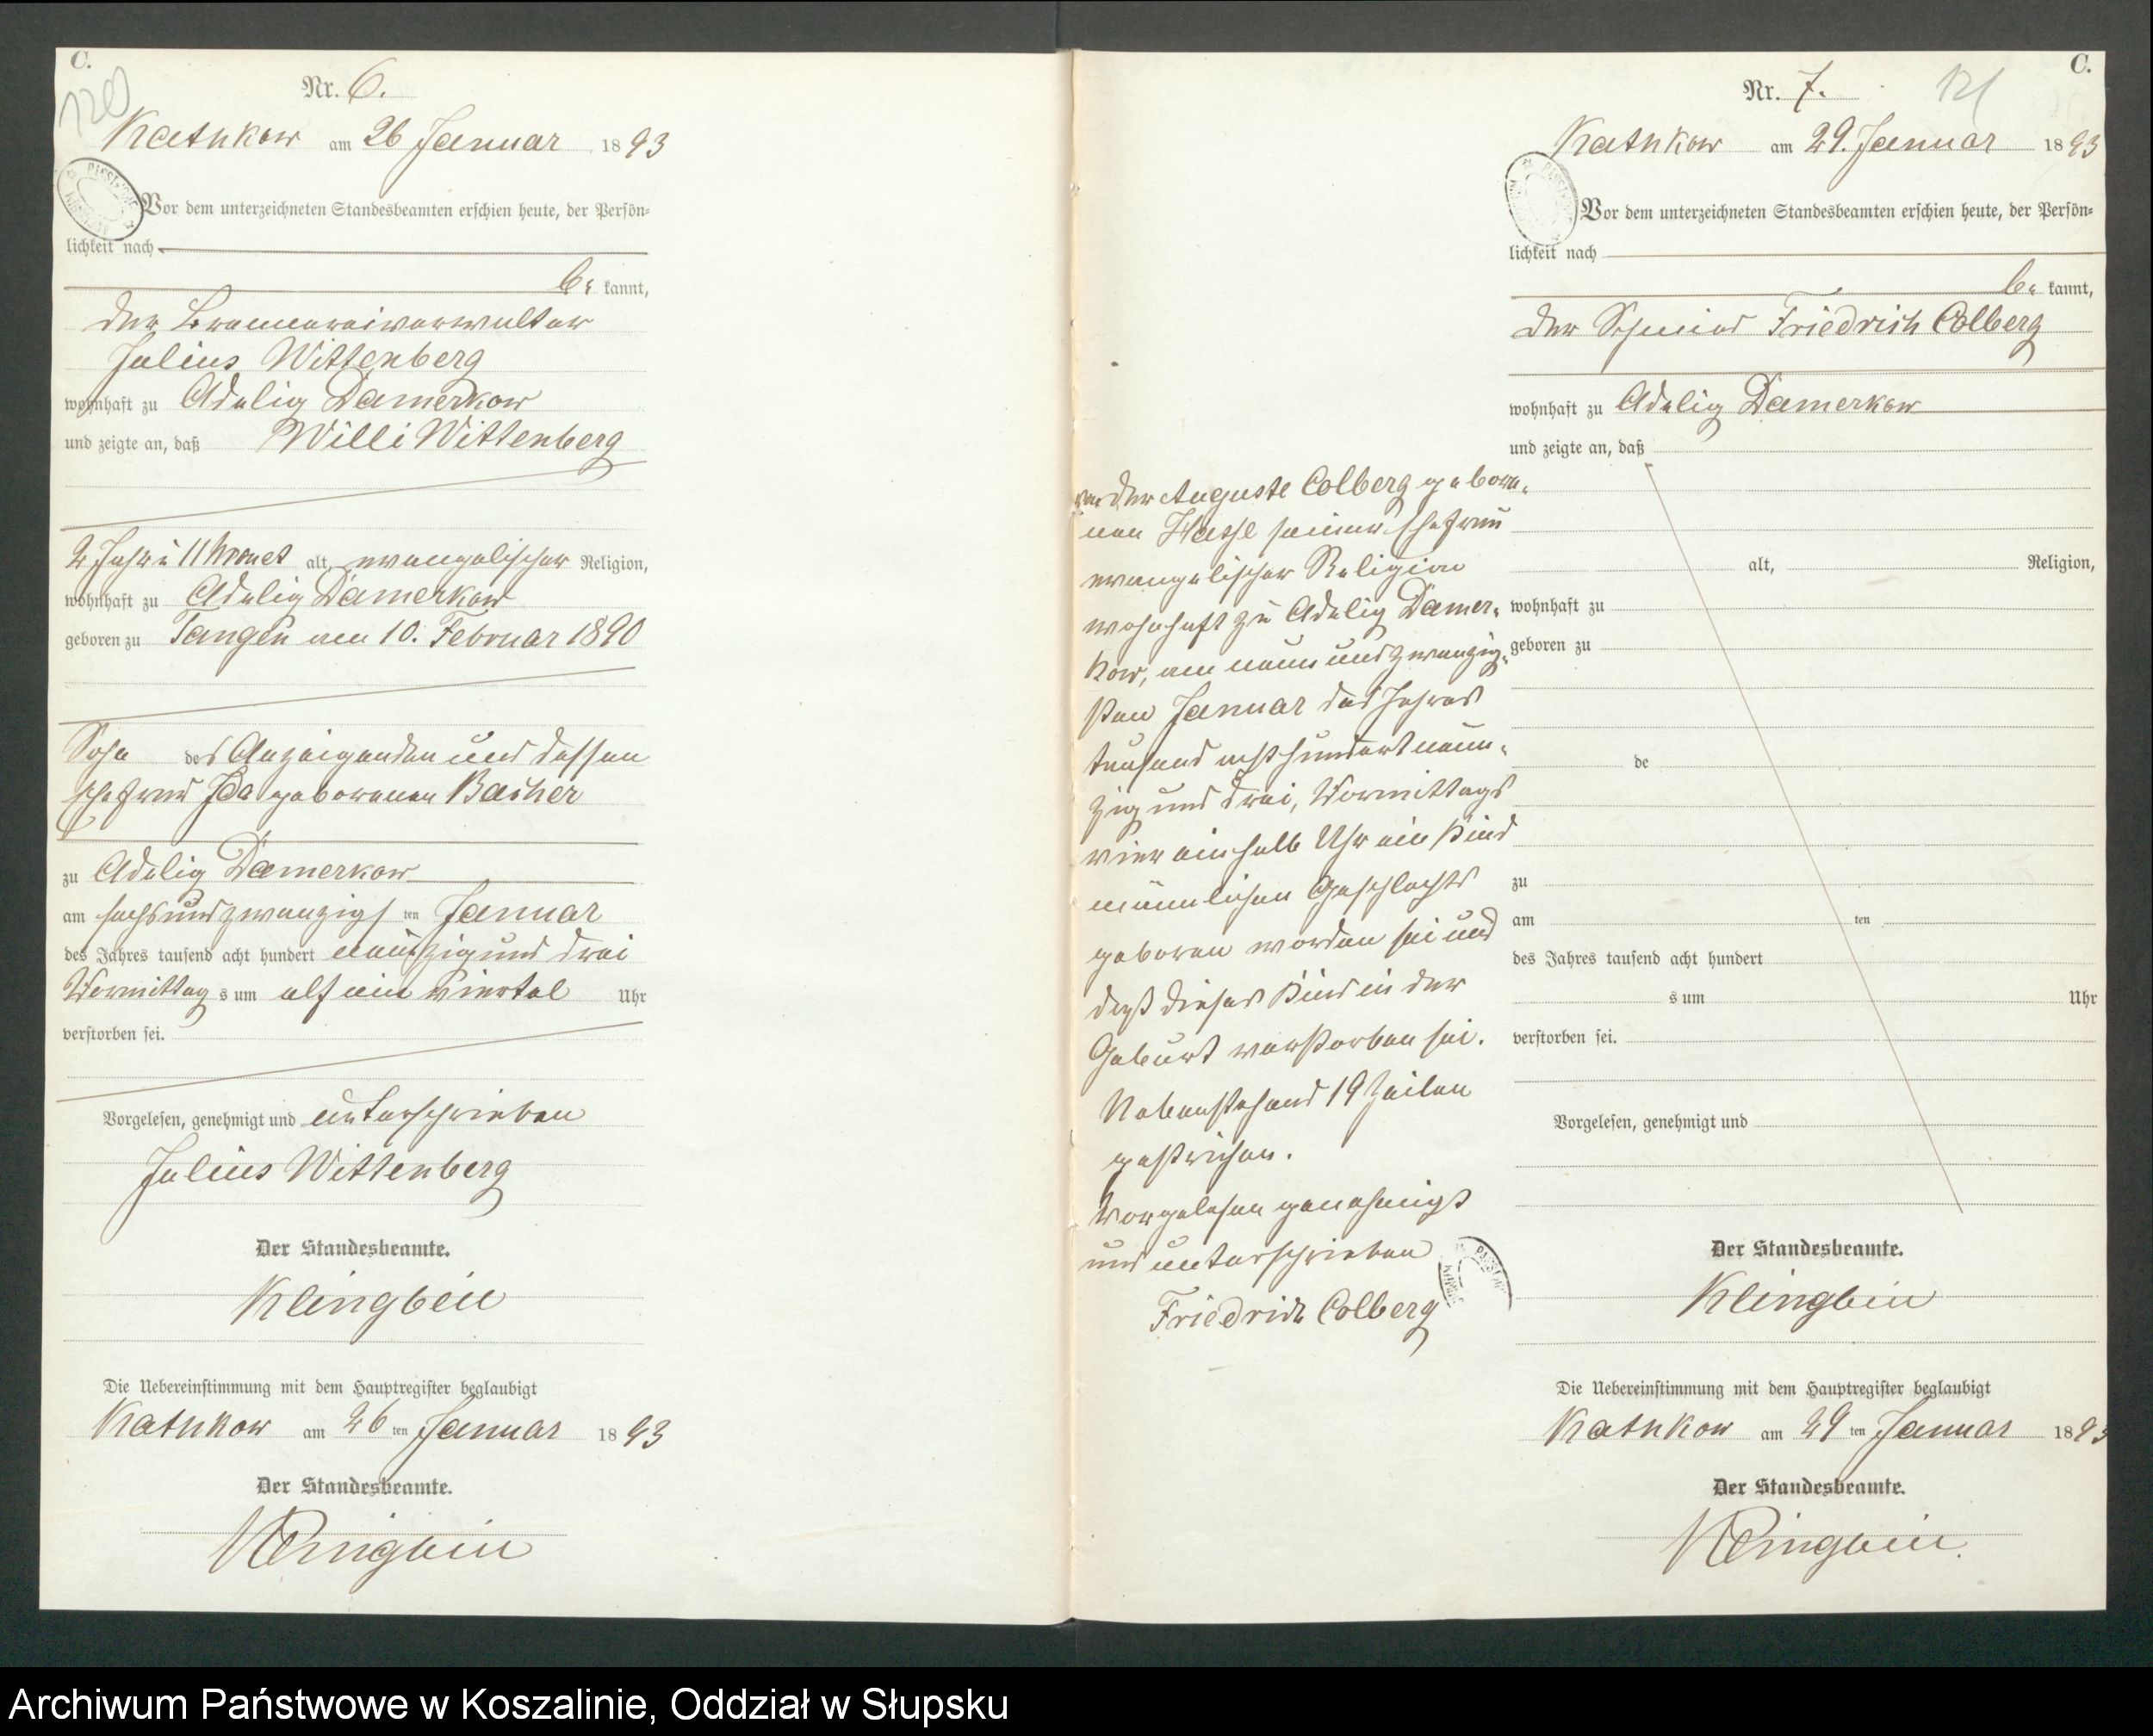 C.
120
Nr. 6.
Kathkow am 26 Januar 1893
Vor dem unterzeichneten Standesbeamten erschien heute, der Persön-
lichkeit nach
be kannt,
der Brennereiverwalter
Julius Wittenberg
wohnhaft zu Adelig Damerkow
und zeigte an, daß Willi Wittenberg
2 Jahr u 11 Monat alt, evangelischer Religion,
wohnhaft zu Adelig Damerkow
geboren zu Tangen am 10. Februar 1890
Sohn des Anzeigenden und dessen
Ehefrau Ida geborenen
zu Adelig Damerkow
am sechsundzwanzigsten Januar
des Jahres tausend acht hundert neunzig und drei
Vormittags um elf ein viertel Uhr
verstorben sei.
Vorgelesen, genehmigt und unterschrieben
Julius Wittenberg
Der Standesbeamte.
Klingbeil
Die Uebereinstimmung mit dem Hauptregister beglaubigt
Kathkow am 26 ten Januar 1893
Der Standesbeamte.
Klingbeil
C.
121
Nr. 7.
Kathkow am 29. Januar 1893
Vor dem unterzeichneten Standesbeamten erschien heute, der Persön-
lichkeit nach
be kannt,
der Schmied Friedrich Colberg
wohnhaft zu Adelig Damerkow
und zeigte an, daß
von der Auguste Colberg gebore-
nen Hasse seiner Ehefrau
evangelischer Religion
wohnhaft zu Adelig Damer-
kow, am neunundzwanzig-
sten Januar des Jahres
tausend achthundert neun-
zig und drei, Vormittags
vier einhalb Uhr ein Kind
männlichen Geschlechts
geboren worden sei und
daß dieses Kind in der
Geburt verstorben sei.
Nebenstehend 19 Zeilen
gestrichen.
Vorgelesen genehmigt
und unterschrieben
Friedrich Colberg
alt, Religion,
wohnhaft zu
geboren zu
de
zu
am ten
des Jahres tausend acht hundert
s um Uhr
verstorben sei.
Vorgelesen, genehmigt und
Der Standesbeamte.
Klingbeil
Die Uebereinstimmung mit dem Hauptregister beglaubigt
Kathkow am 29 ten Januar 1893
Der Standesbeamte.
Klingbeil.
Archiwum Państwowe w Koszalinie, Oddział w Słupsku